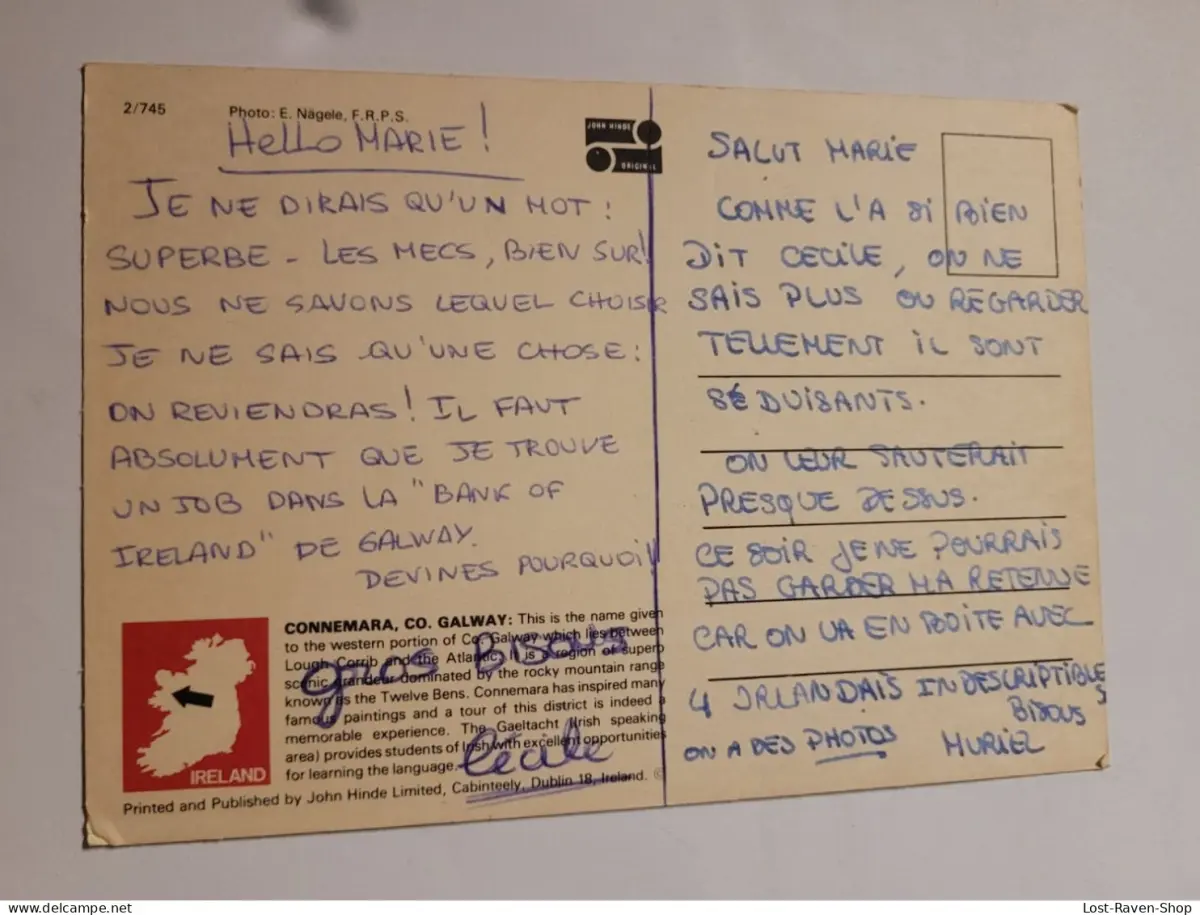 2/745
Photo: E. Nägele, F.R.P.S.
JOHN HINDE
ORIGINAL
HELLO MARIE !
JE NE DIRAIS QU'UN MOT :
SUPERBE - LES MECS, BIEN SUR!
NOUS NE SAVONS LEQUEL CHOISIR
JE NE SAIS QU'UNE CHOSE :
ON REVIENDRAS ! IL FAUT
ABSOLUMENT QUE JE TROUVE
UN JOB DANS LA "BANK OF
IRELAND" DE GALWAY.
DEVINES POURQUOI!
Gros Bisous
Cécile
IRELAND
CONNEMARA, CO. GALWAY: This is the name given
to the western portion of Co. Galway which lies between
Lough Corrib and the Atlantic. It is a region of superb
scenic grandeur dominated by the rocky mountain range
known as the Twelve Bens. Connemara has inspired many
famous paintings and a tour of this district is indeed a
memorable experience. The Gaeltacht (Irish speaking
area) provides students of Irish with excellent opportunities
for learning the language.
Printed and Published by John Hinde Limited, Cabinteely, Dublin 18, Ireland. ©
SALUT MARIE
COMME L'A SI BIEN
DIT CECILE, ON NE
SAIS PLUS OU REGARDER
TELLEMENT IL SONT
SÉDUISANTS.
ON LEUR SAUTERAIT
PRESQUE DESSUS.
CE SOIR JE NE POURRAIS
PAS GARDER MA RETENUE
CAR ON VA EN BOITE AVEC
4 IRLANDAIS INDESCRIPTIBLES
BISOUS
ON A DES PHOTOS MURIEL
Lost-Raven-Shop
delcampe.net